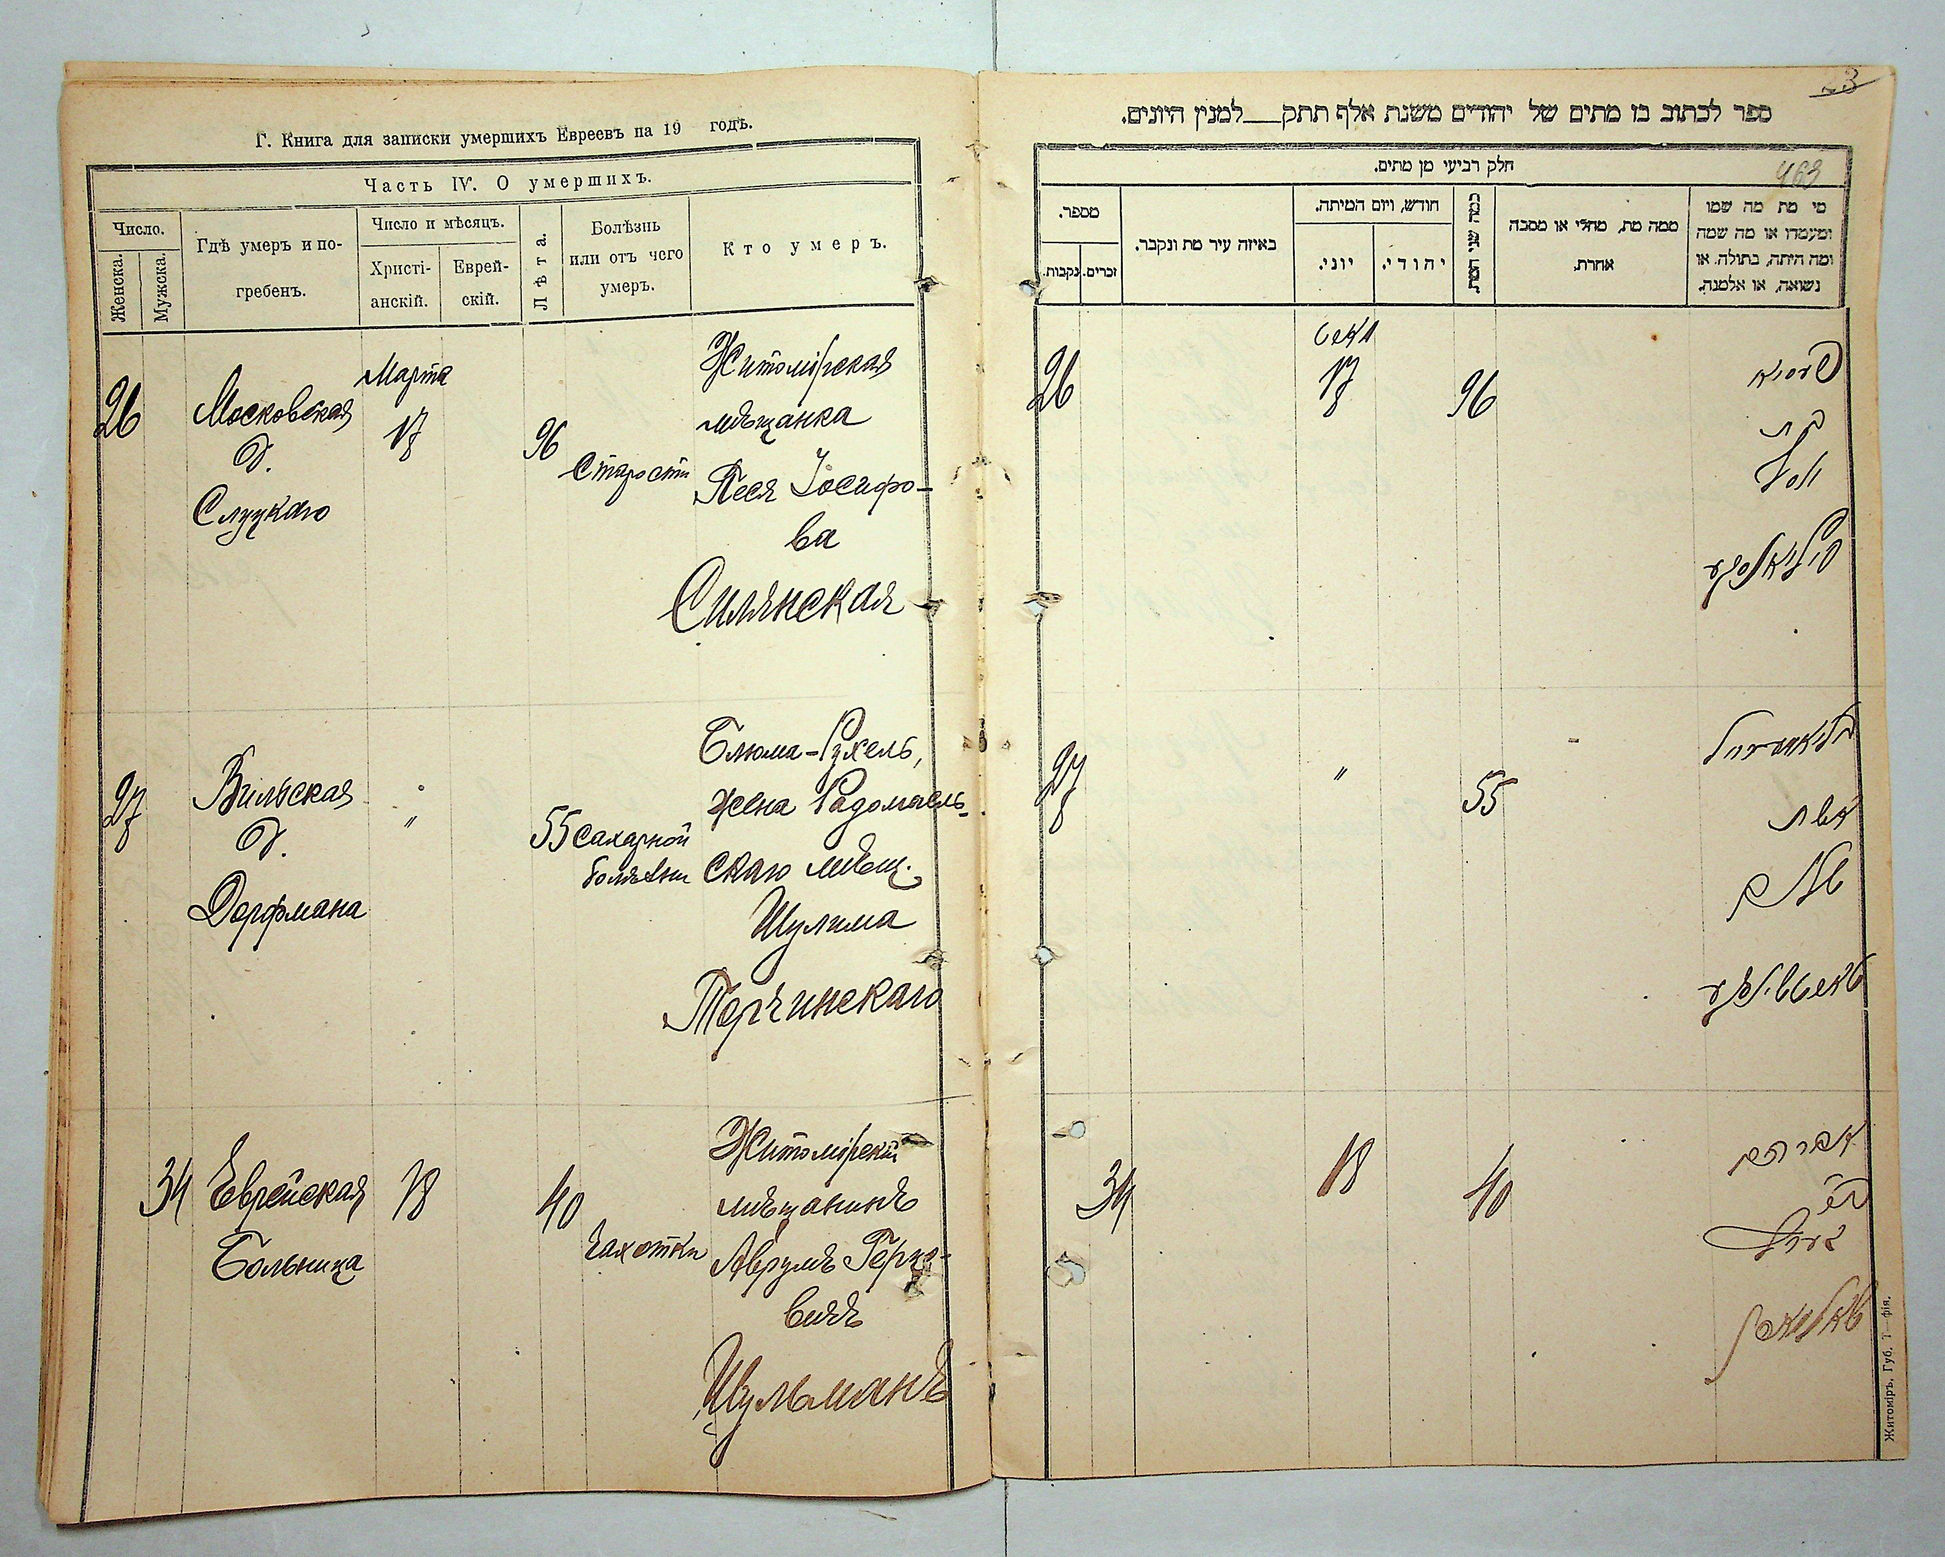 Г. Книга для записки умершихъ Евреевъ на 19 годъ.
Часть IV. О умершихъ.
Число.
Женска.
Мужска.
Гдѣ умеръ и по-
гребенъ.
Число и мѣсяцъ.
Христі-
анскій.
Еврей-
скій.
Лѣта.
Болѣзнь
или отъ чего
умеръ.
Кто умеръ.
26
Московская
д.
Слуцкаго
Марта
17
96
Старости
Житомірская
мѣщанка
Песя Іосифо-
ва
Силянская
27
Вильская
д.
Дорфмана
"
55
Сахарной
болѣзни
Блюма-Рухель,
жена Радомысль-
скаго мѣщ.
Шулима
Торчинскаго
34
Еврейская
Больница
18
40
Чахотки
Житомірскій
мѣщанинъ
Аврумъ Герко-
вичъ
Шульманъ
23
ספר לכתוב בו מתים של יהודים משנת אלף תתק למנין היונים.
463
חלק רביעי מן מתים.
מספר.
נקבות.
זכרים.
באיזה עיר מת ונקבר.
חודש, ויום המיתה.
יוני.
יהודי.
כמה שני המת.
ממה מת, מחלי או מסבה
אחרת.
מי מת מה שמו
ומעמדו או מה שמה
ומה היתה, בתולה. או
נשואה, או אלמנה.
26
מארט
17
96
בת
יוסף
27
"
55
אשת
שלום
34
18
40
אברהם
שולמאן
Житоміръ, Губ. Т—фія.